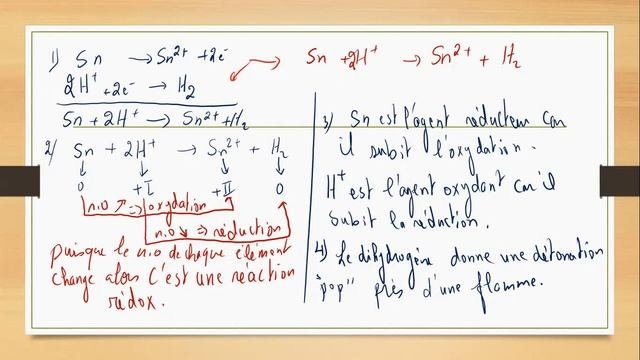 1) Sn → Sn²⁺ + 2e⁻
2H⁺ + 2e⁻ → H₂
Sn + 2H⁺ → Sn²⁺ + H₂
Sn + 2H⁺ → Sn²⁺ + H₂
2) Sn + 2H⁺ → Sn²⁺ + H₂
0 +I +II 0
n.o ↗ ⇒ oxydation
n.o ↘ ⇒ réduction
Puisque le n.o de chaque élément
change alors C'est une réaction
rédox.
3) Sn est l'agent réducteur car
il subit l'oxydation.
H⁺ est l'agent oxydant car il
subit la réduction.
4) Le dihydrogène donne une détonation
"pop" près d'une flamme.